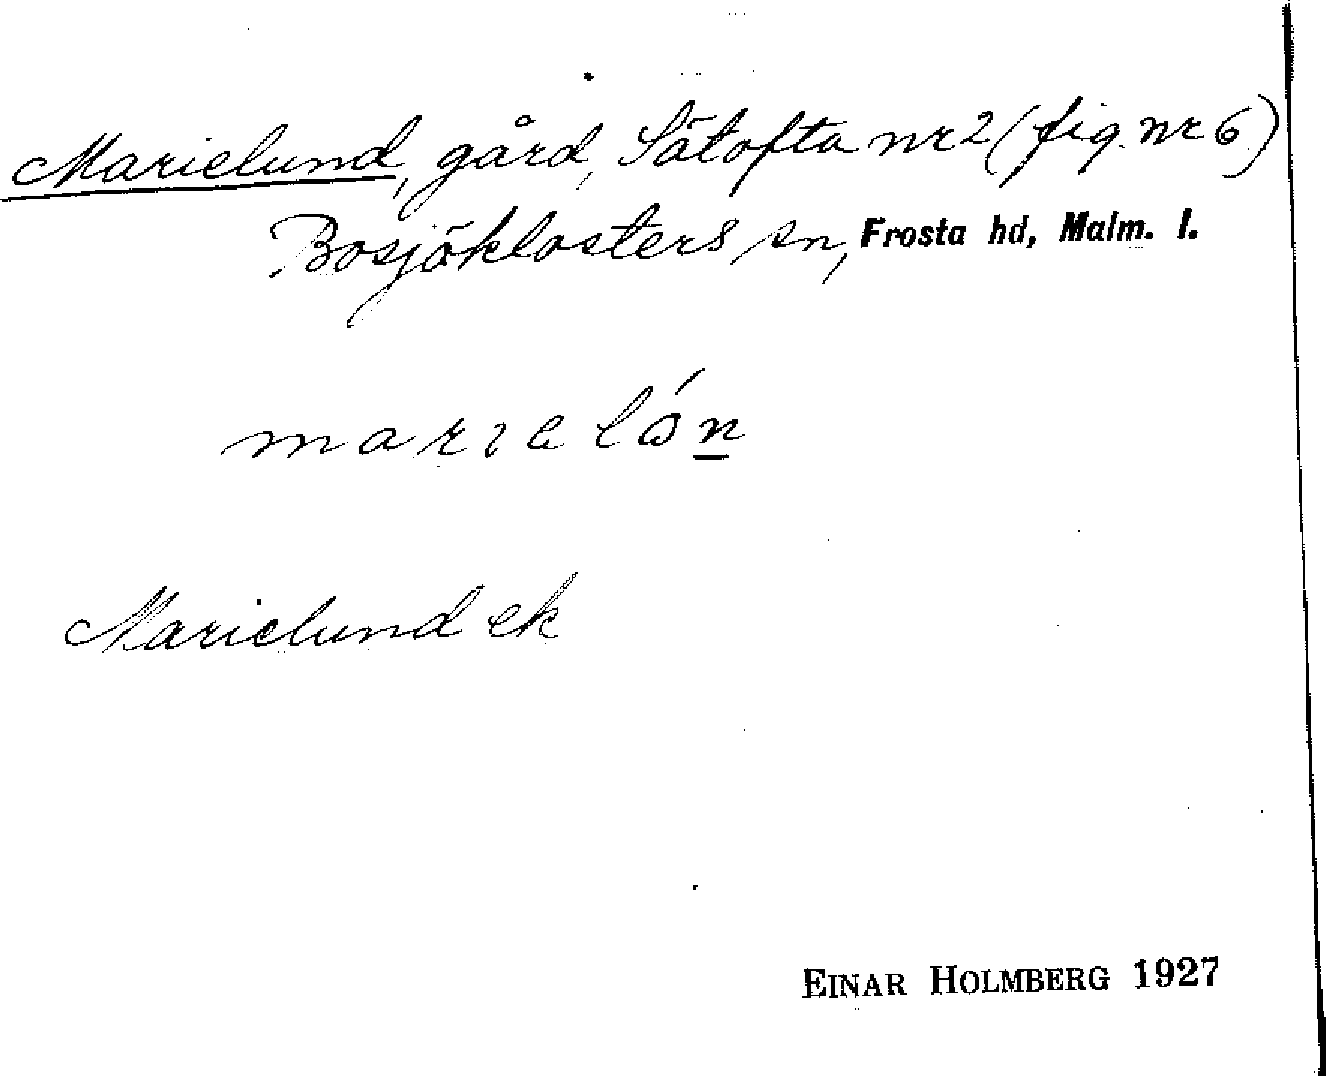 Marielund, gård, Sätofta nr 2 (fig. nr 6)
Bosjöklosters sn, Frosta hd, Malm. l.
marıelón
Marielund ek
EINAR HOLMBERG 1927